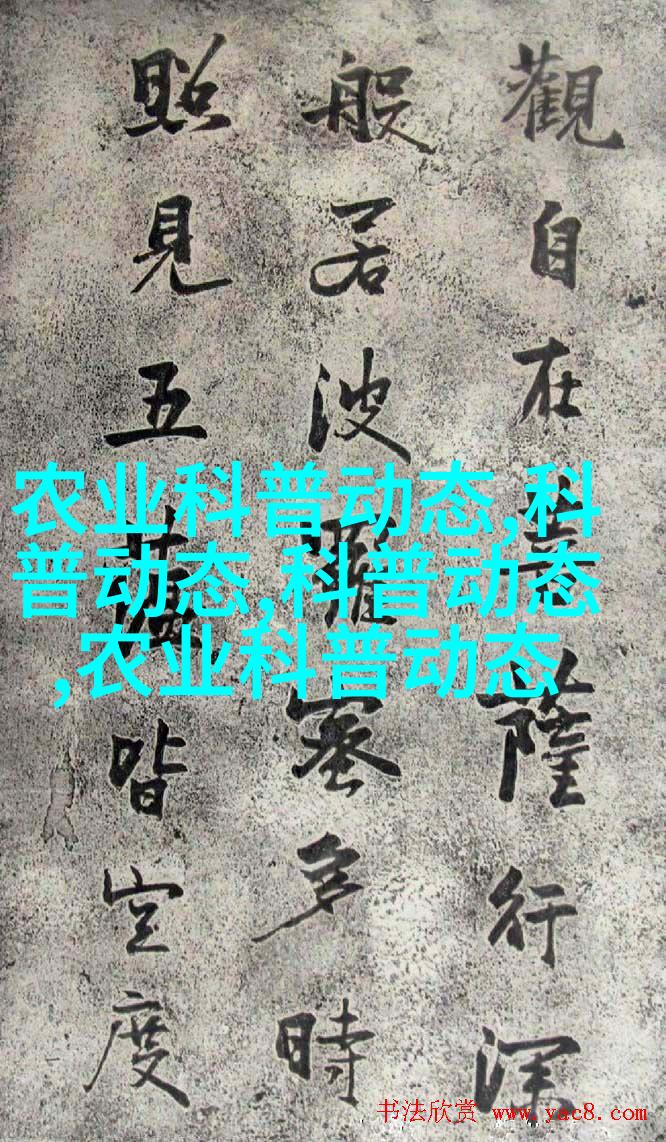 觀自在菩薩行深
般若波羅蜜多時
照見五蘊皆空度
农业科普动态,科
普动态,科普动态
,农业科普动态
书法欣赏 www.yac8.com